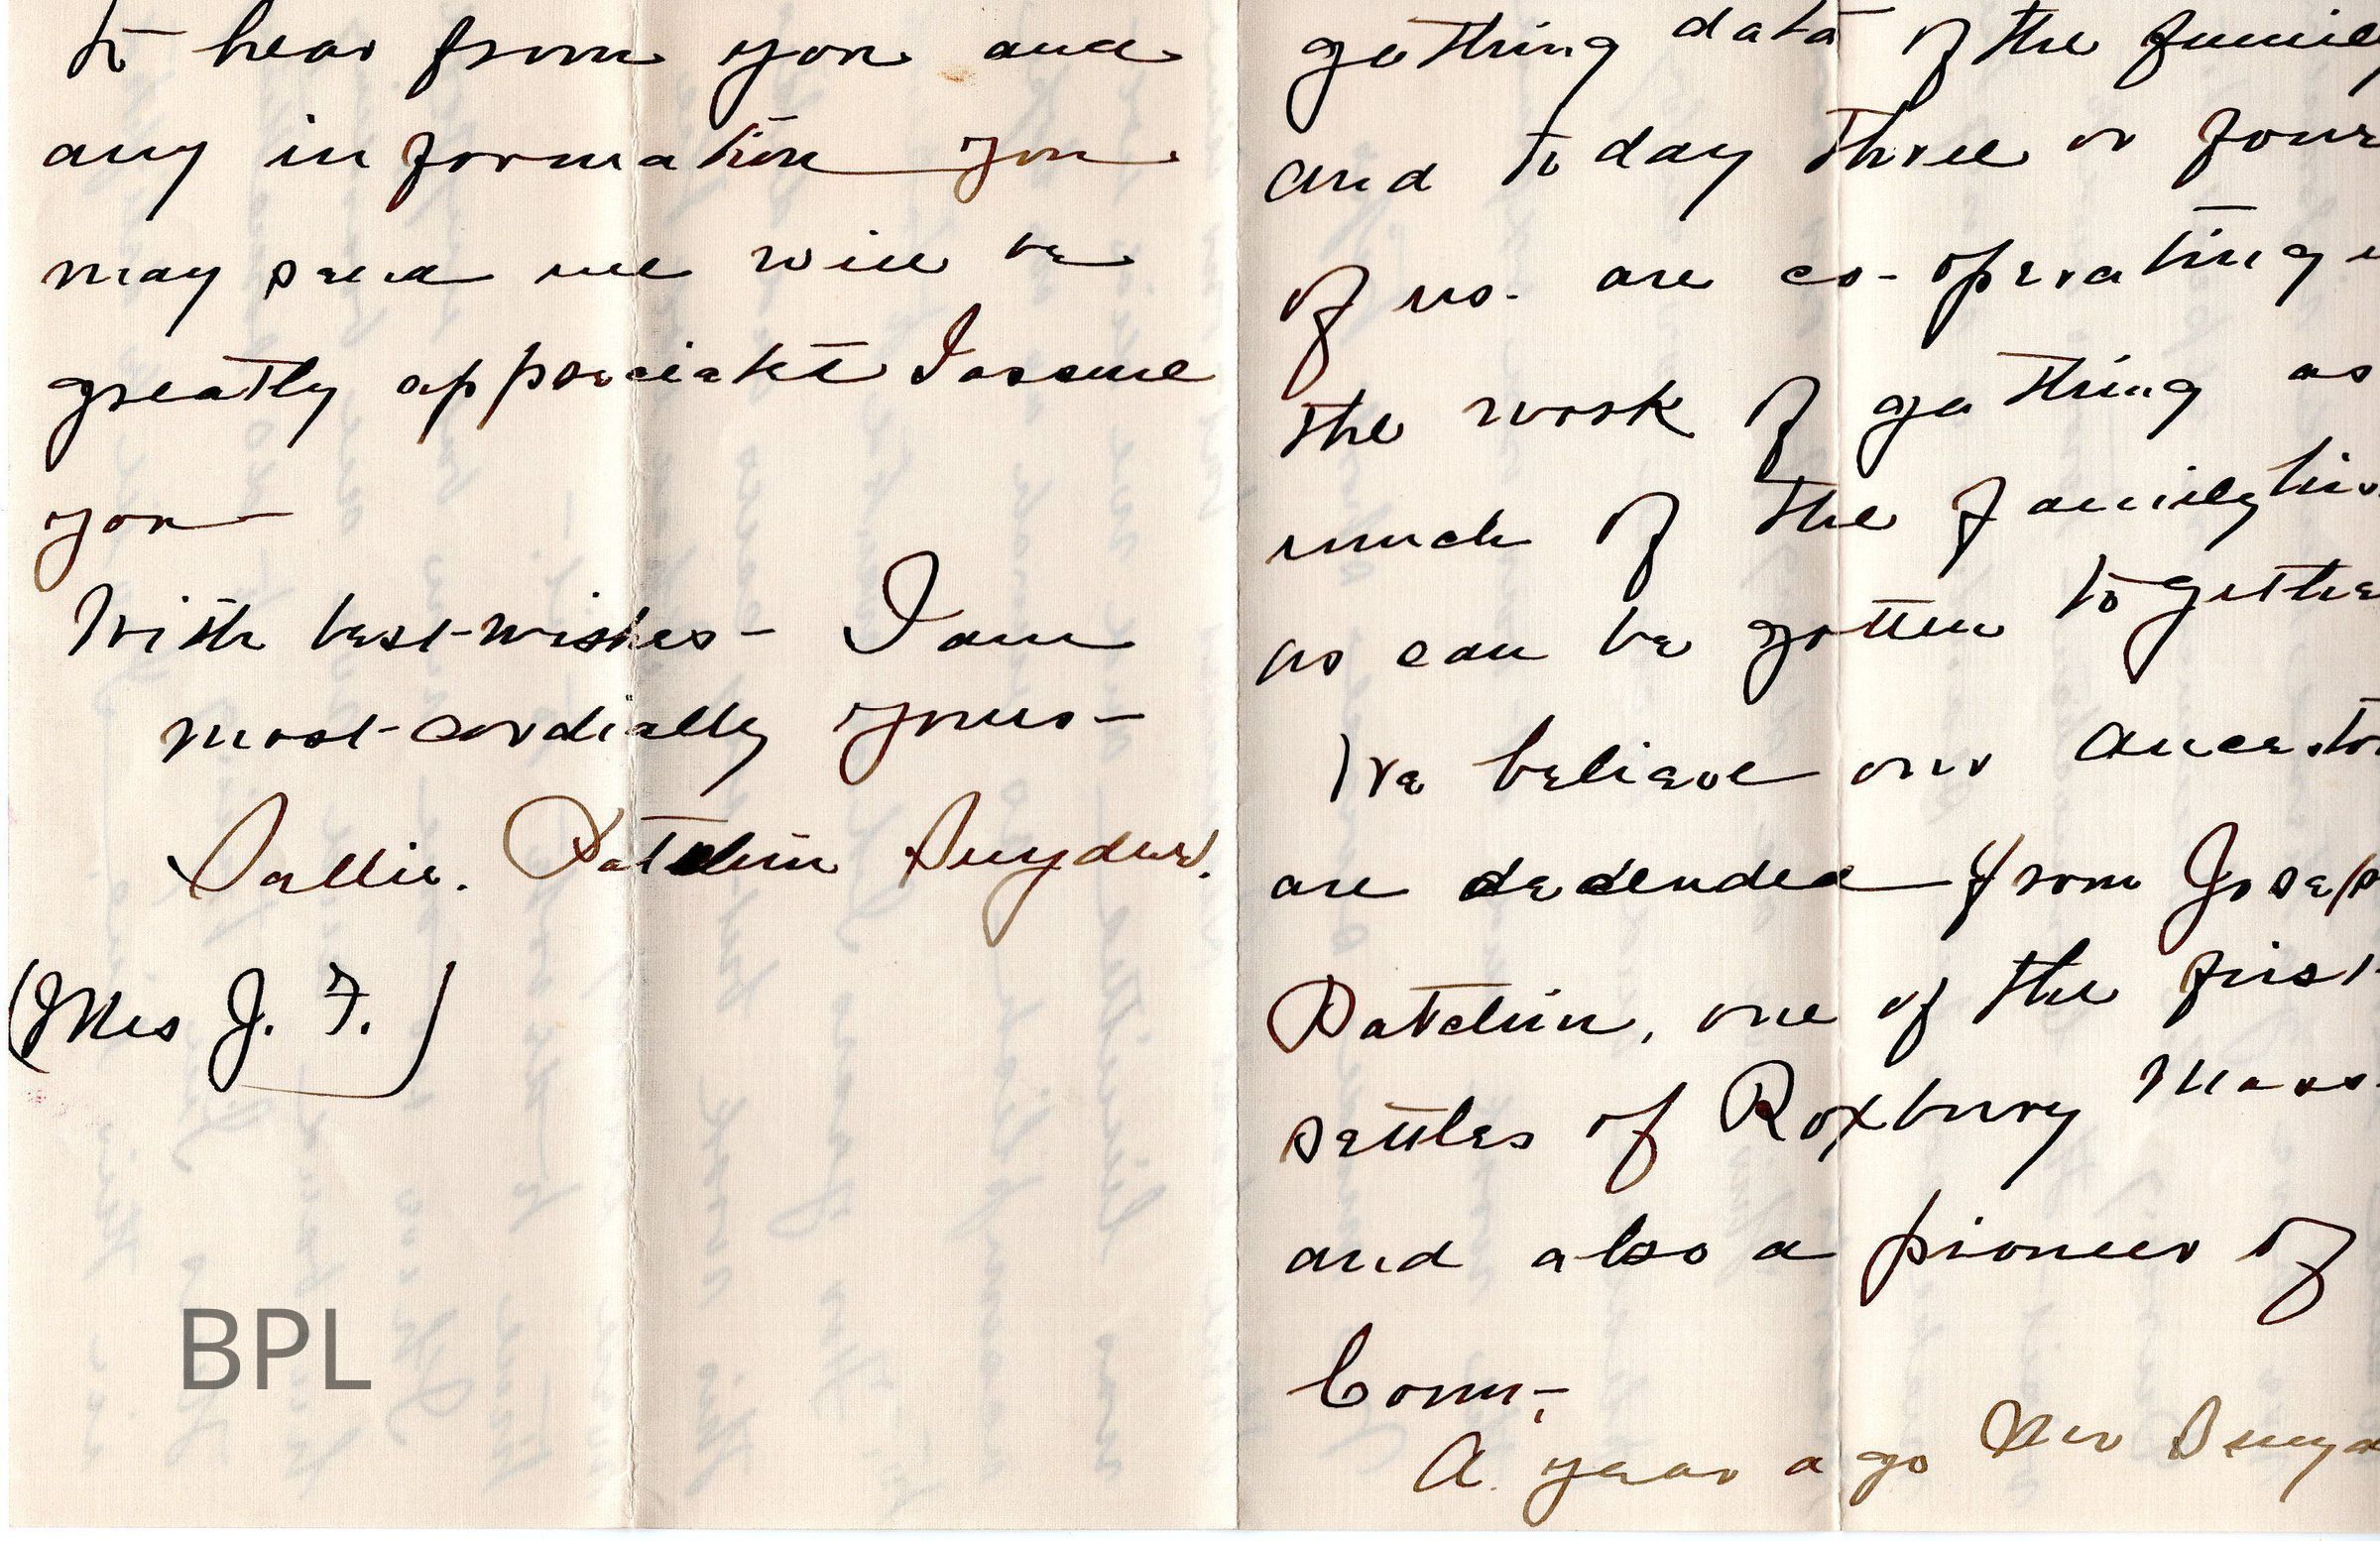 to hear from you and
any information you
may send me will be
greatly appreciated I assure
you
With best-wishes- I am
most-cordially yours-
Sallie. Patchin Snyder.
(Mrs J. F.)
BPL
gathing data of the family
and to day three or four
of us. are co-operating
the work of gathing as
much of the family his
as can be gotten togethe
We believe our ancesto
are dedended from Josep
Patchin, one of the first
settles of Roxbury Mass.
and also a pioneer of
Conn,-
A year ago Mr Snyd